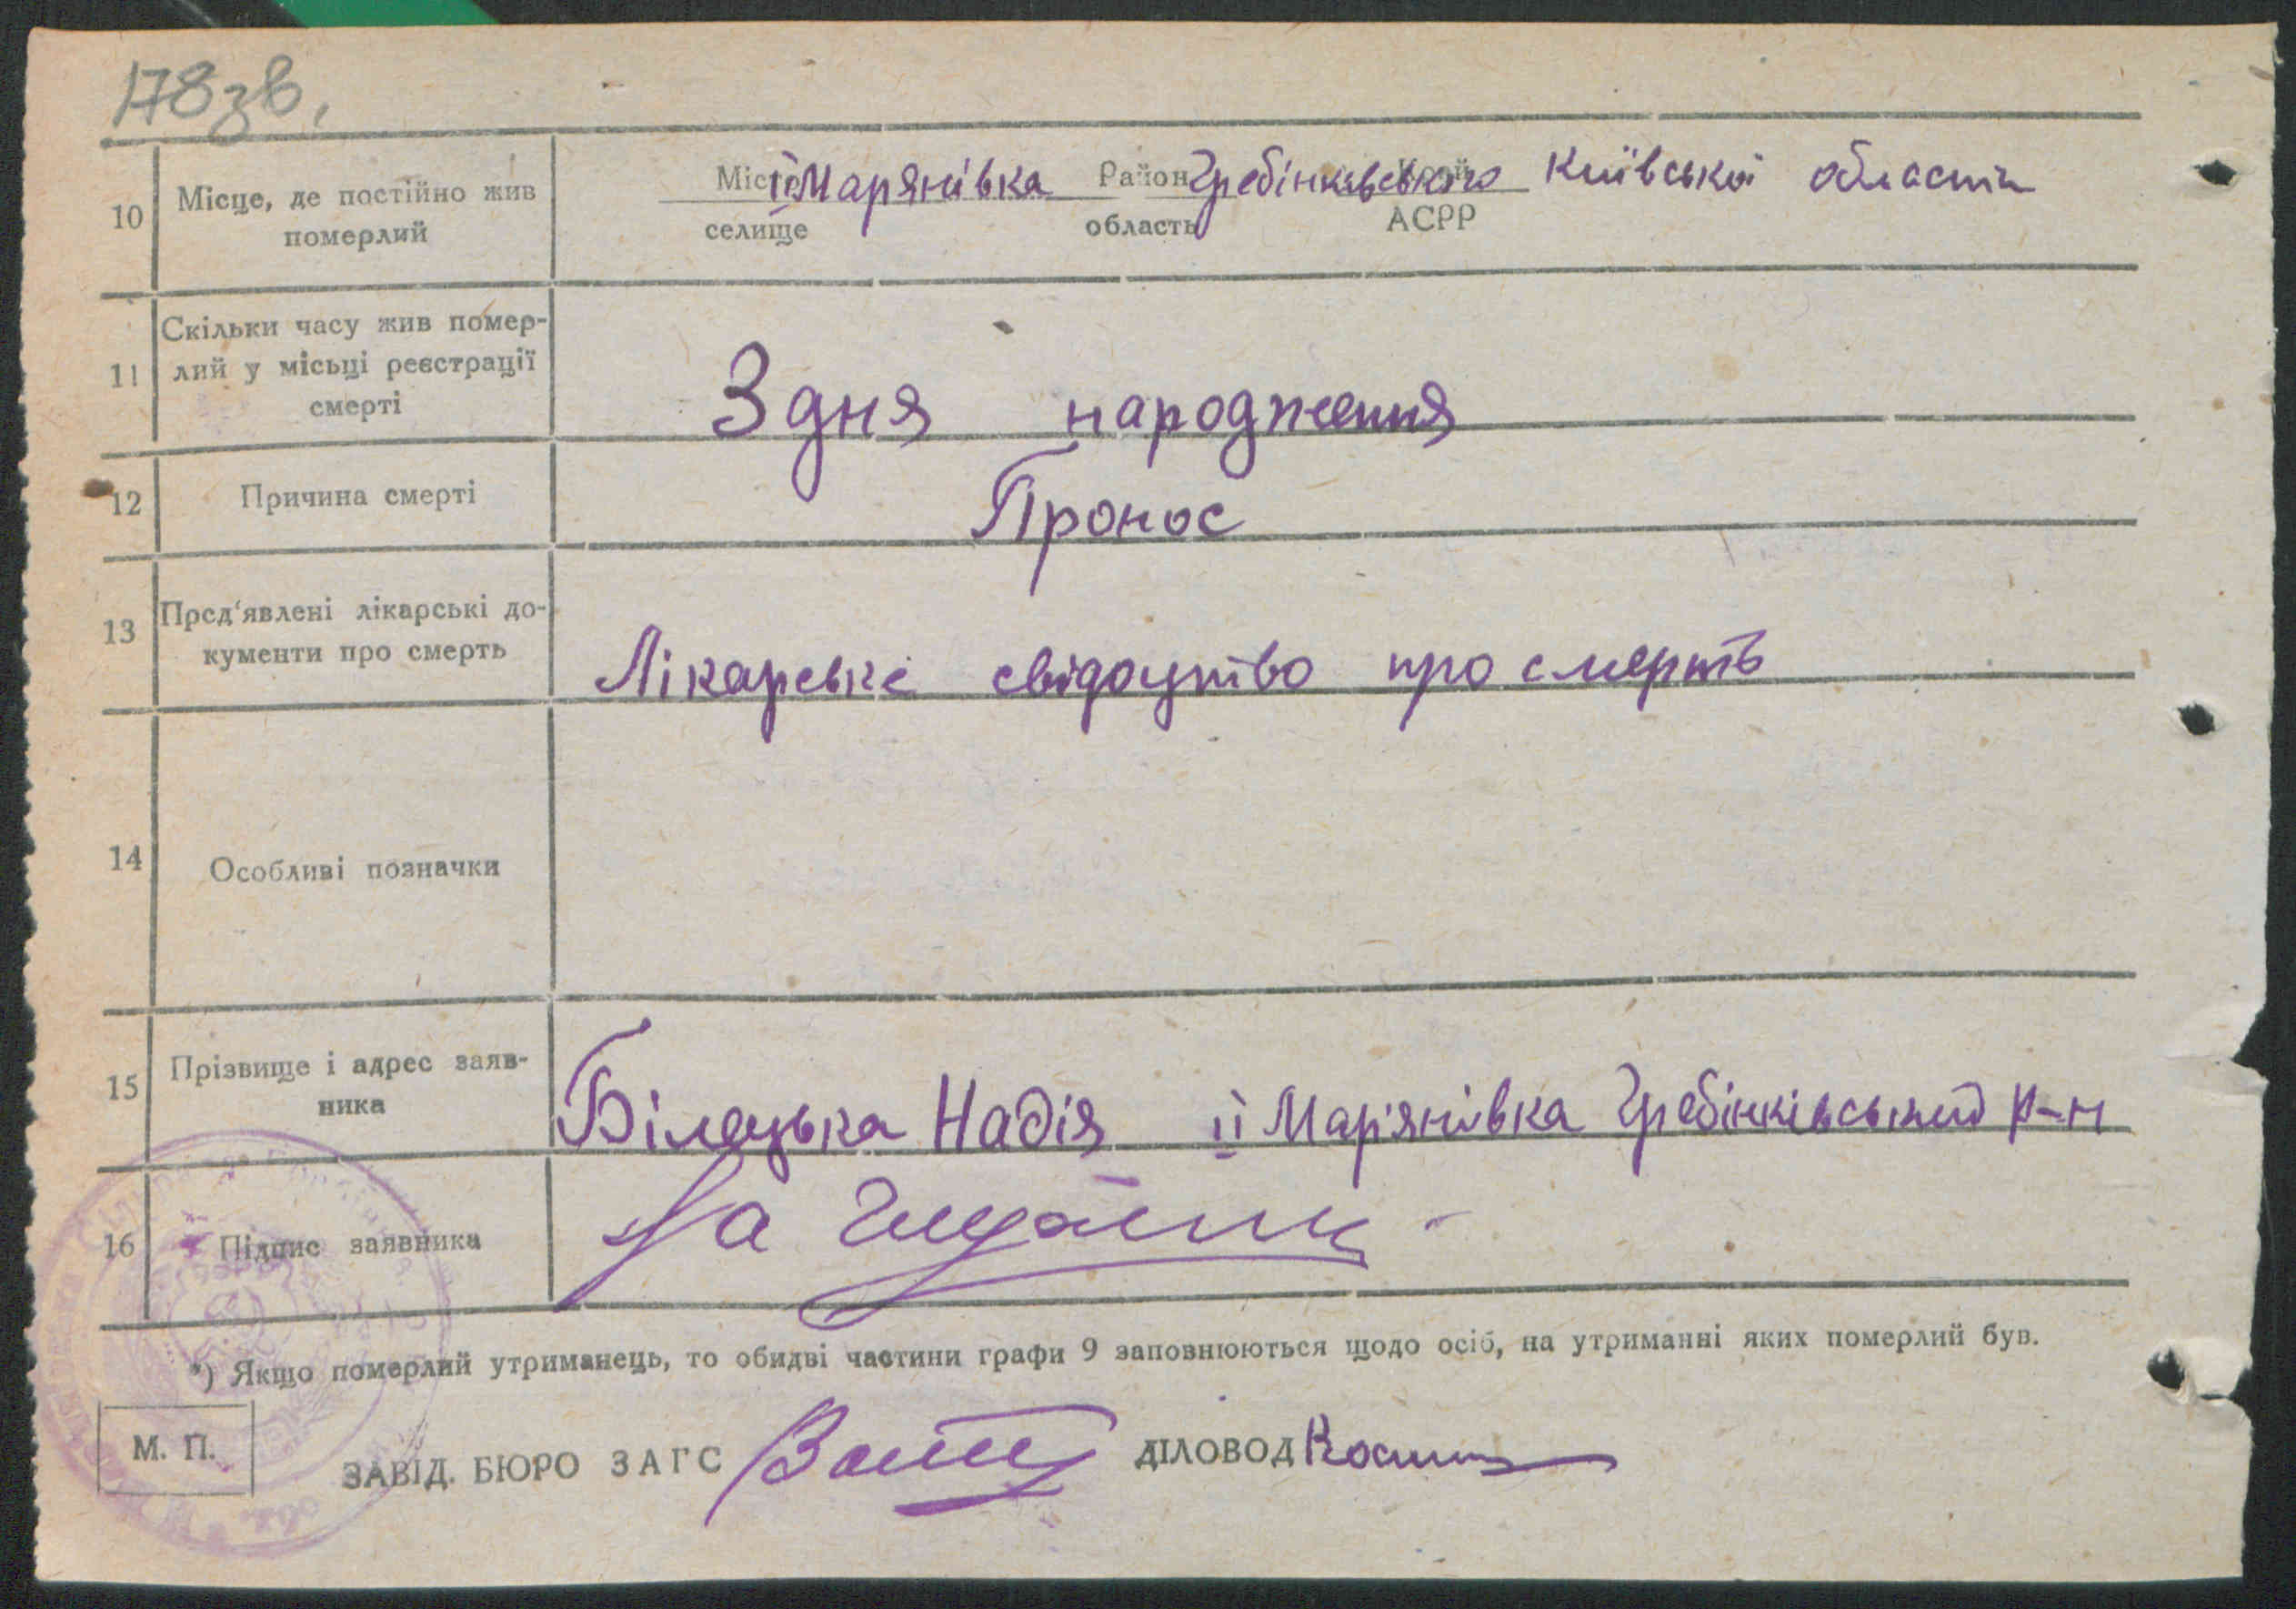 178зв.
10 Місце, де постійно жив померлий
Місто ІІ Марянівка Район Гребінківського Київської області
селище область АСРР
11 Скільки часу жив помер-
лий у місьці реєстрації
смерті
З дня народження
12 Причина смерті Пронос
13 Пред'явлені лікарські до-
кументи про смерть
Лікарське свідоцтво про смерть
14 Особливі позначки
15 Прізвище і адрес заяв-
ника
Білецька Надія ІІ Мар'янівка Гребінківський р-н
16 Підпис заявника
*) Якщо померлий утриманець, то обидві частини графи 9 заповнюються щодо осіб, на утриманні яких померлий був.
М. П.
ЗАВІД. БЮРО ЗАГС ДІЛОВОД